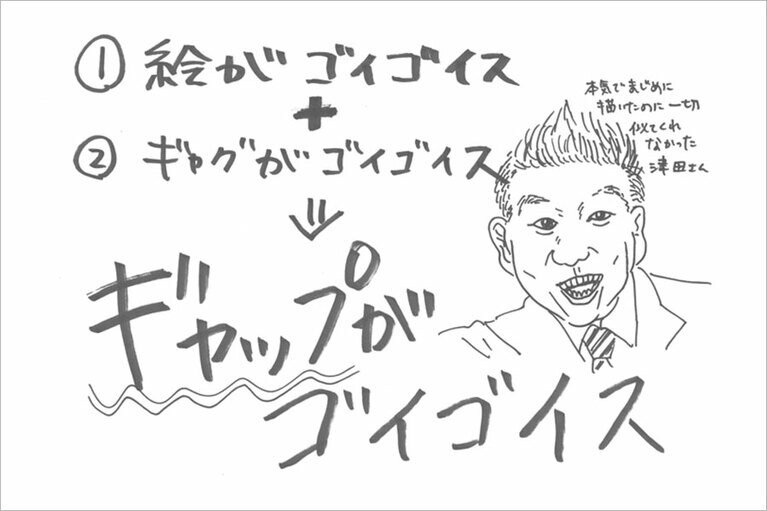 ① 絵がゴイゴイス
+
② ギャグがゴイゴイス
⇓
ギャップが
ゴイゴイス
本気でまじめに
描いたのに一切
似てくれ
なかった
津田さん